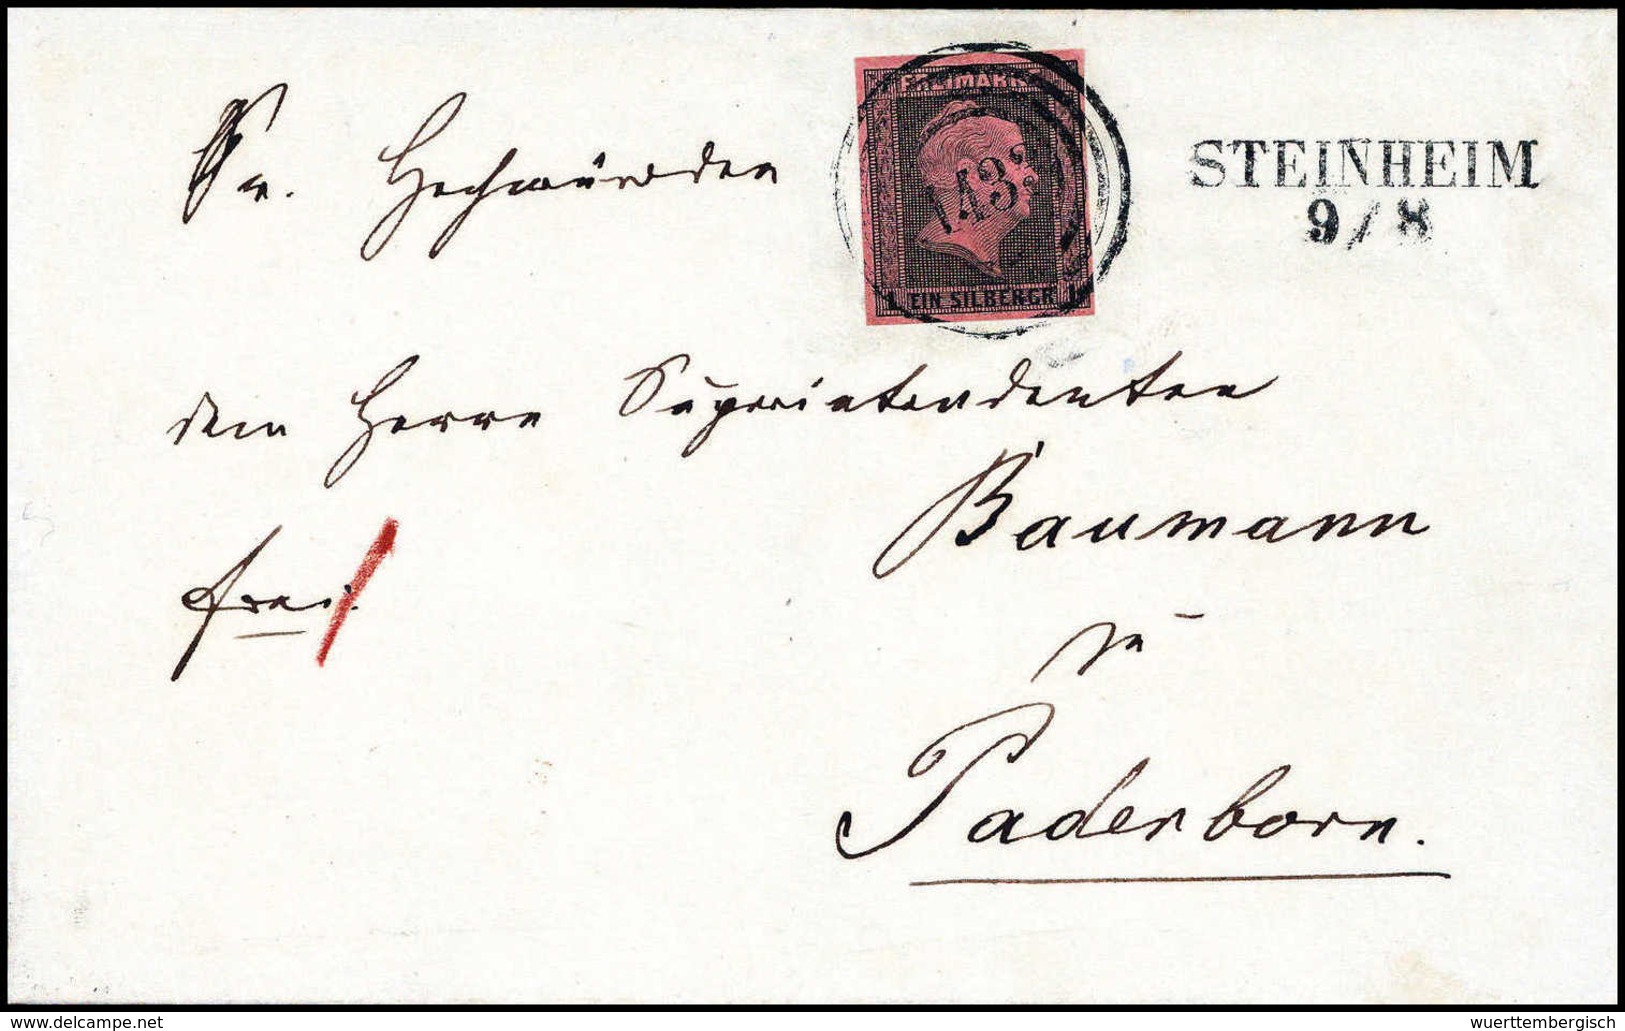 FREIMARKE
1433
1 EIN SILBERGR. 1
STEINHEIM
9/8
Sr. Hochwürden
dem Herrn Superintendenten
Baumann
frei.
zu
Paderborn.
www.delcampe.net
wuerttembergisch